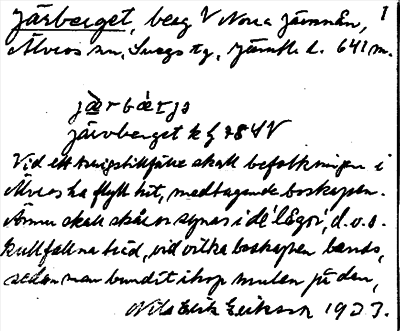 Järberget, berg V Norra Järnnån, 1
Älvros sn, Svegs tg, Jämtl. l. 641 m.
järbärjə
järvberget k g 784 V
Vid ett krigstillfälle skall befolkningen i
Älvros ha flytt hit, medtagande boskapen.
Ännu skall skåror synas i de, d.v.s.
kullfallna träd, vid vilka boskapen bands,
sedan man bundit ihop mulen på den,
Nils Erik Eriksson 1933.